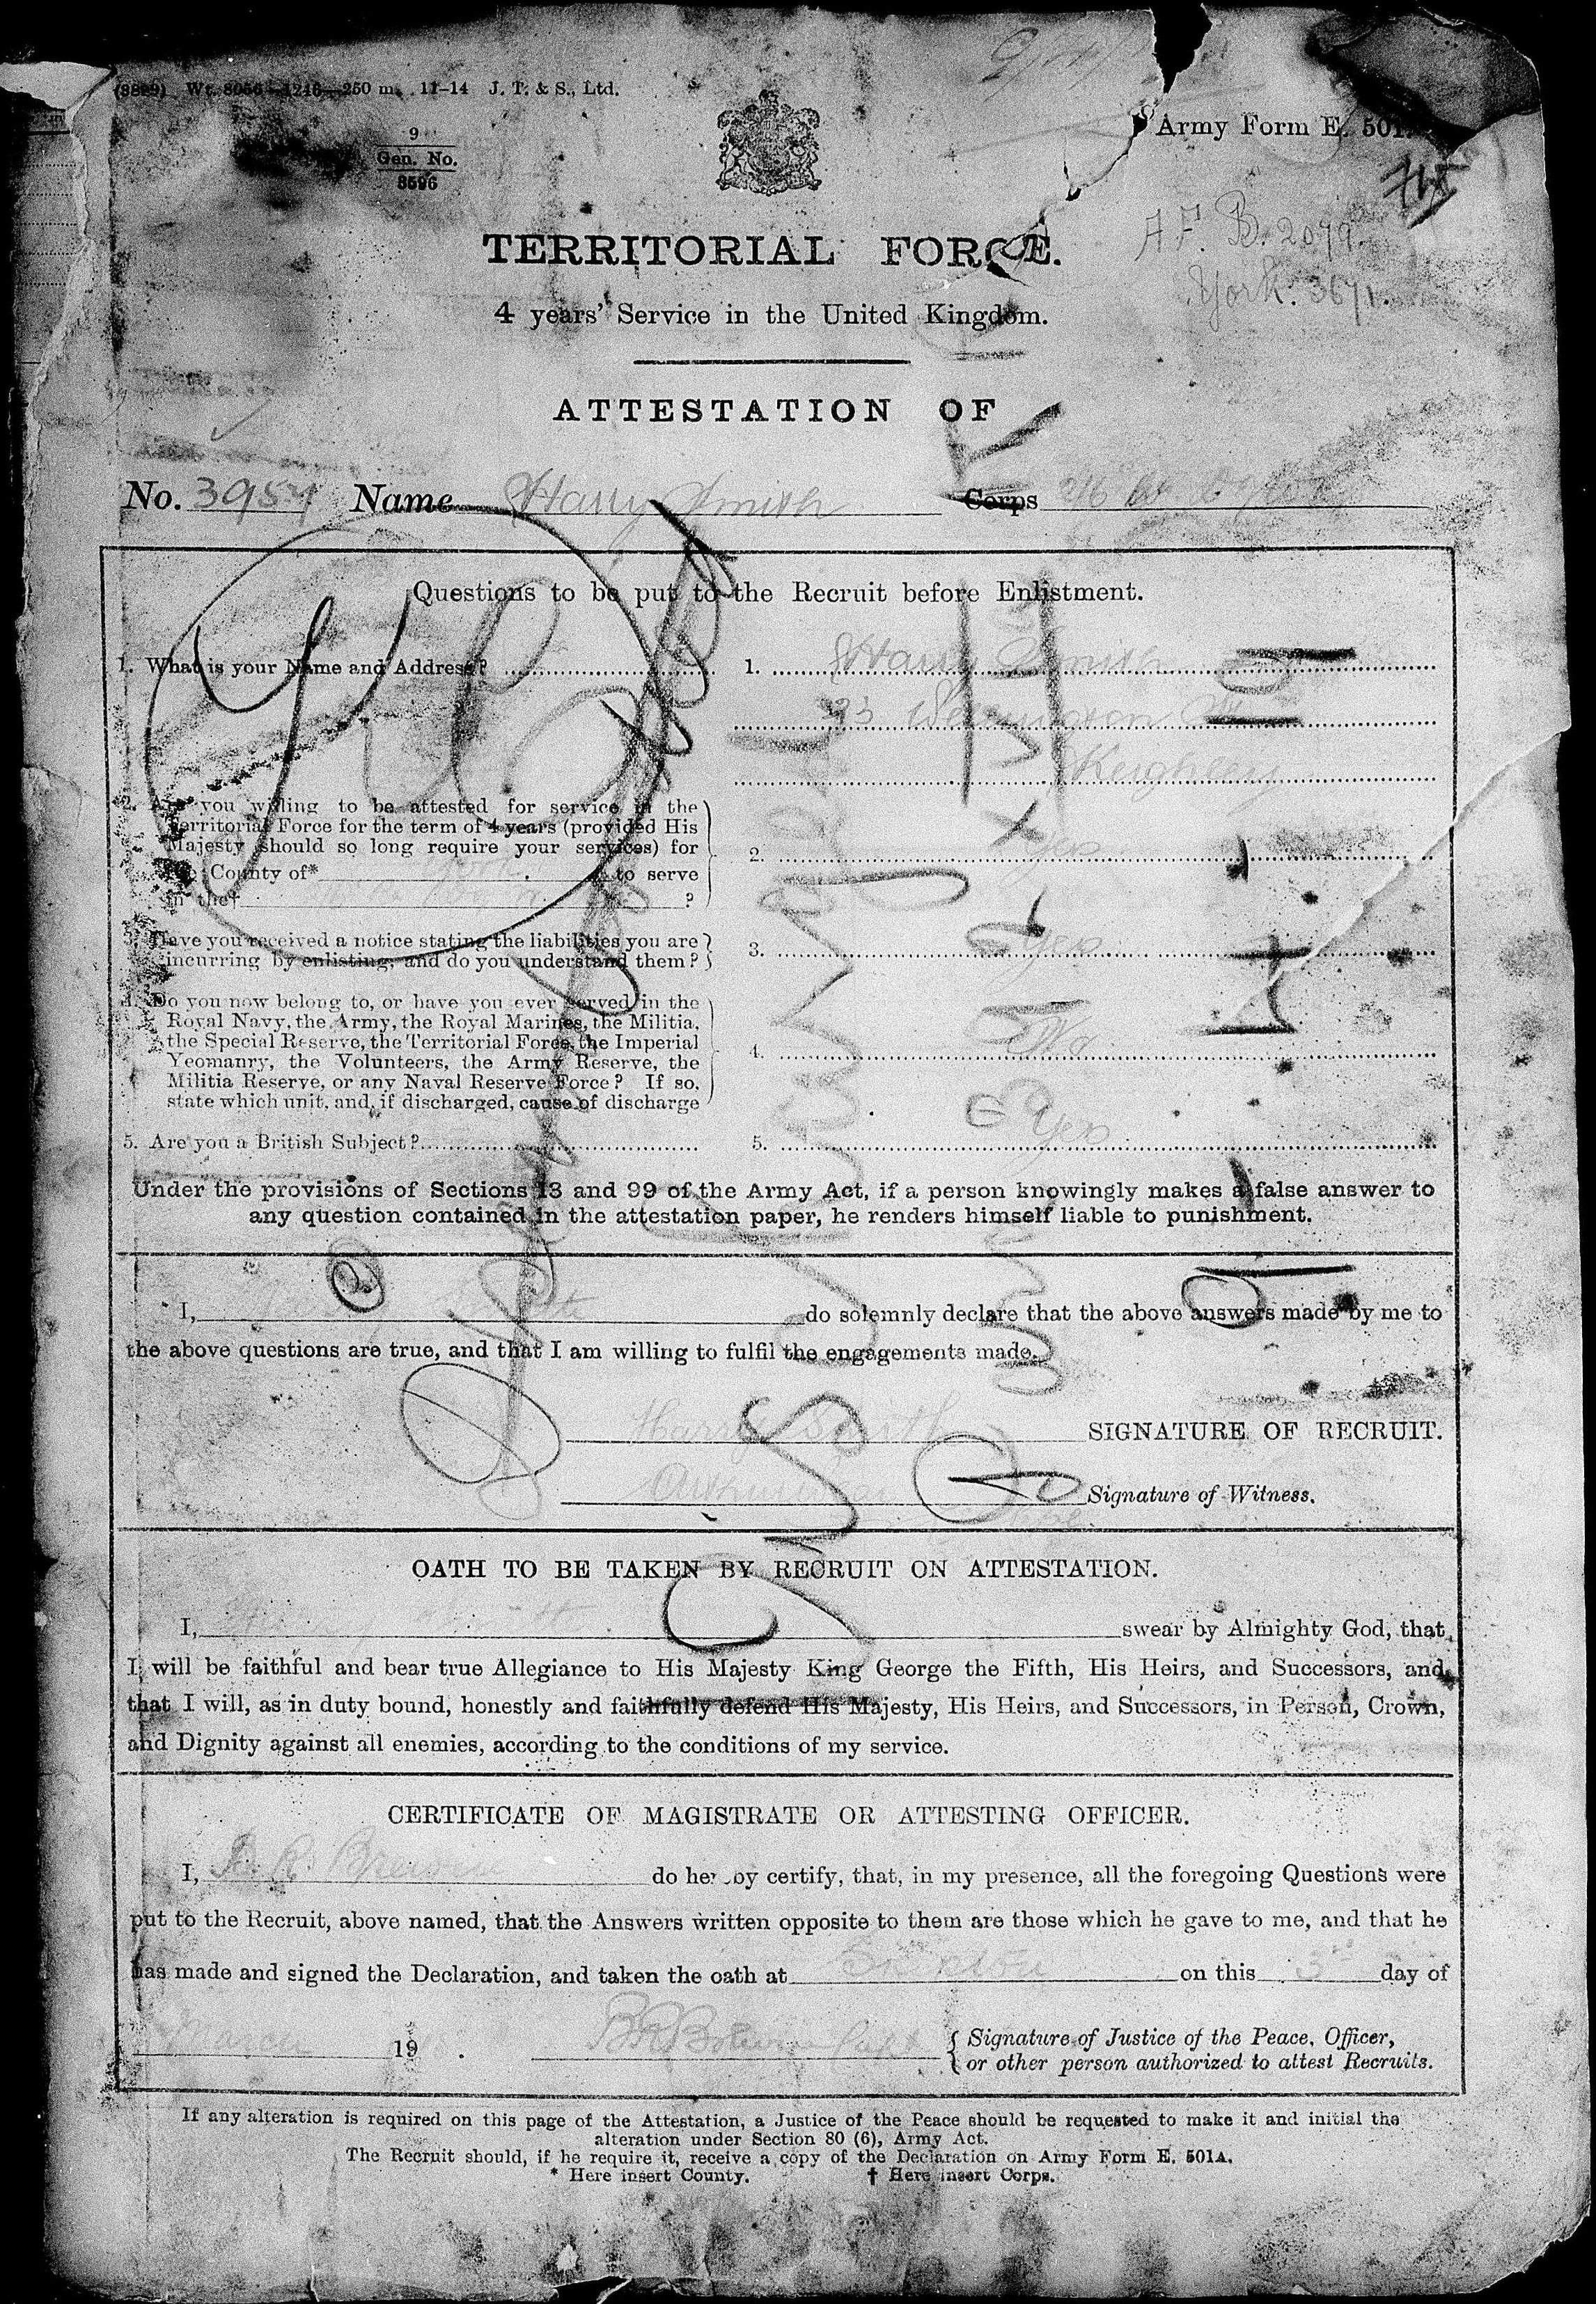 (8899) Wt. 8056—1246—250 m. 11-14 J. T. & S., Ltd.
9
Gen. No.
8596
Army Form E. 501.
A F. B. 2079.
York. 3671.
TERRITORIAL FORCE.
4 years' Service in the United Kingdom.
ATTESTATION OF
No. 3957 Name Harry Smith Corps
Questions to be put to the Recruit before Enlistment.
1. What is your Name and Address? 1. Harry Smith
Keighley
2. Are you willing to be attested for service in the
Territorial Force for the term of 4 years (provided His
Majesty should so long require your services) for
the County of* York to serve
in the† ?
2. Yes
3. Have you received a notice stating the liabilities you are
incurring by enlisting, and do you understand them?
3. Yes
4. Do you now belong to, or have you ever served in the
Royal Navy, the Army, the Royal Marines, the Militia,
the Special Reserve, the Territorial Force, the Imperial
Yeomanry, the Volunteers, the Army Reserve, the
Militia Reserve, or any Naval Reserve Force? If so,
state which unit, and, if discharged, cause of discharge
4. No
5. Are you a British Subject? 5. Yes
Under the provisions of Sections 13 and 99 of the Army Act, if a person knowingly makes a false answer to
any question contained in the attestation paper, he renders himself liable to punishment.
I, Harry Smith do solemnly declare that the above answers made by me to
the above questions are true, and that I am willing to fulfil the engagements made.
Harry Smith SIGNATURE OF RECRUIT.
Signature of Witness.
OATH TO BE TAKEN BY RECRUIT ON ATTESTATION.
I, Harry Smith swear by Almighty God, that
I will be faithful and bear true Allegiance to His Majesty King George the Fifth, His Heirs, and Successors, and
that I will, as in duty bound, honestly and faithfully defend His Majesty, His Heirs, and Successors, in Person, Crown,
and Dignity against all enemies, according to the conditions of my service.
CERTIFICATE OF MAGISTRATE OR ATTESTING OFFICER.
I, do hereby certify, that, in my presence, all the foregoing Questions were
put to the Recruit, above named, that the Answers written opposite to them are those which he gave to me, and that he
has made and signed the Declaration, and taken the oath at on this 3rd day of
March 19 .
Signature of Justice of the Peace, Officer,
or other person authorized to attest Recruits.
If any alteration is required on this page of the Attestation, a Justice of the Peace should be requested to make it and initial the
alteration under Section 80 (6), Army Act.
The Recruit should, if he require it, receive a copy of the Declaration on Army Form E. 501A.
* Here insert County. † Here insert Corps.